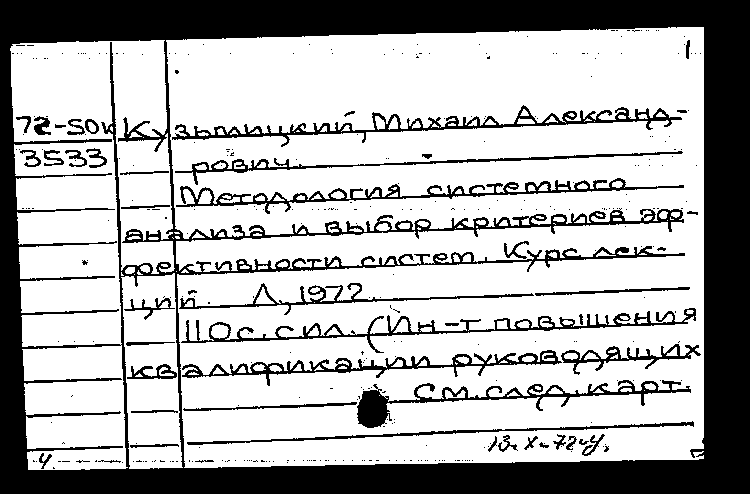 1
72-SOк Кузьмицкий, Михаил Александ-
3533 рович.
Методология системного
анализа и выбор критериев эф-
фективности систем. Курс лек-
ций. Л, 1972.
110с. с ил. (Ин-т повышения
квалификации руководящих
См. след. карт.
13. X-72-У.
4